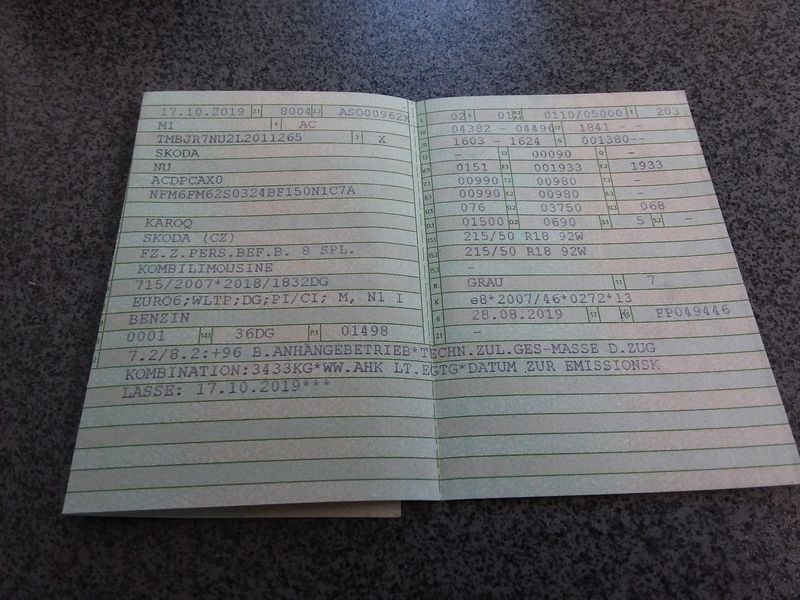 17.10.2019 2.1 8004 2.2 ASO00962X
M1 4 AC
TMBJR7NU2L2011265 3 X
SKODA
NU
ACDPCAX0
NFM6FM62S0324BF150N1C7A
KAROQ
SKODA (CZ)
FZ.Z.PERS.BEF.B. 8 SPL.
KOMBILIMOUSINE
715/2007*2018/1832DG
EURO6;WLTP;DG;PI/CI; M, N1 I
BENZIN
0001 14.1 36DG P.1 01498
L 02 9 01 P.2 P.4 0110/05000 T 203
18 04382 - 04496 19 1841
20 1603 - 1624 G 001380--
12 - 13 00090 Q -
V.7 0151 F.1 001933 F.2 1933
7.1 00990 7.2 00980 7.3 -
8.1 00990 8.2 00980 8.3 -
U.1 076 U.2 03750 U.3 068
O.1 01500 O.2 0690 S.1 5 S.2 -
15.1 215/50 R18 92W
15.2 215/50 R18 92W
15.3 -
R GRAU 11 7
K e8*2007/46*0272*13
6 28.08.2019 17 K 16 FP049446
21 -
7.2/8.2:+96 B.ANHÄNGEBETRIEB*TECHN.ZUL.GES-MASSE D.ZUG
KOMBINATION:3433KG*WW.AHK LT.EGTG*DATUM ZUR EMISSIONSK
LASSE: 17.10.2019***